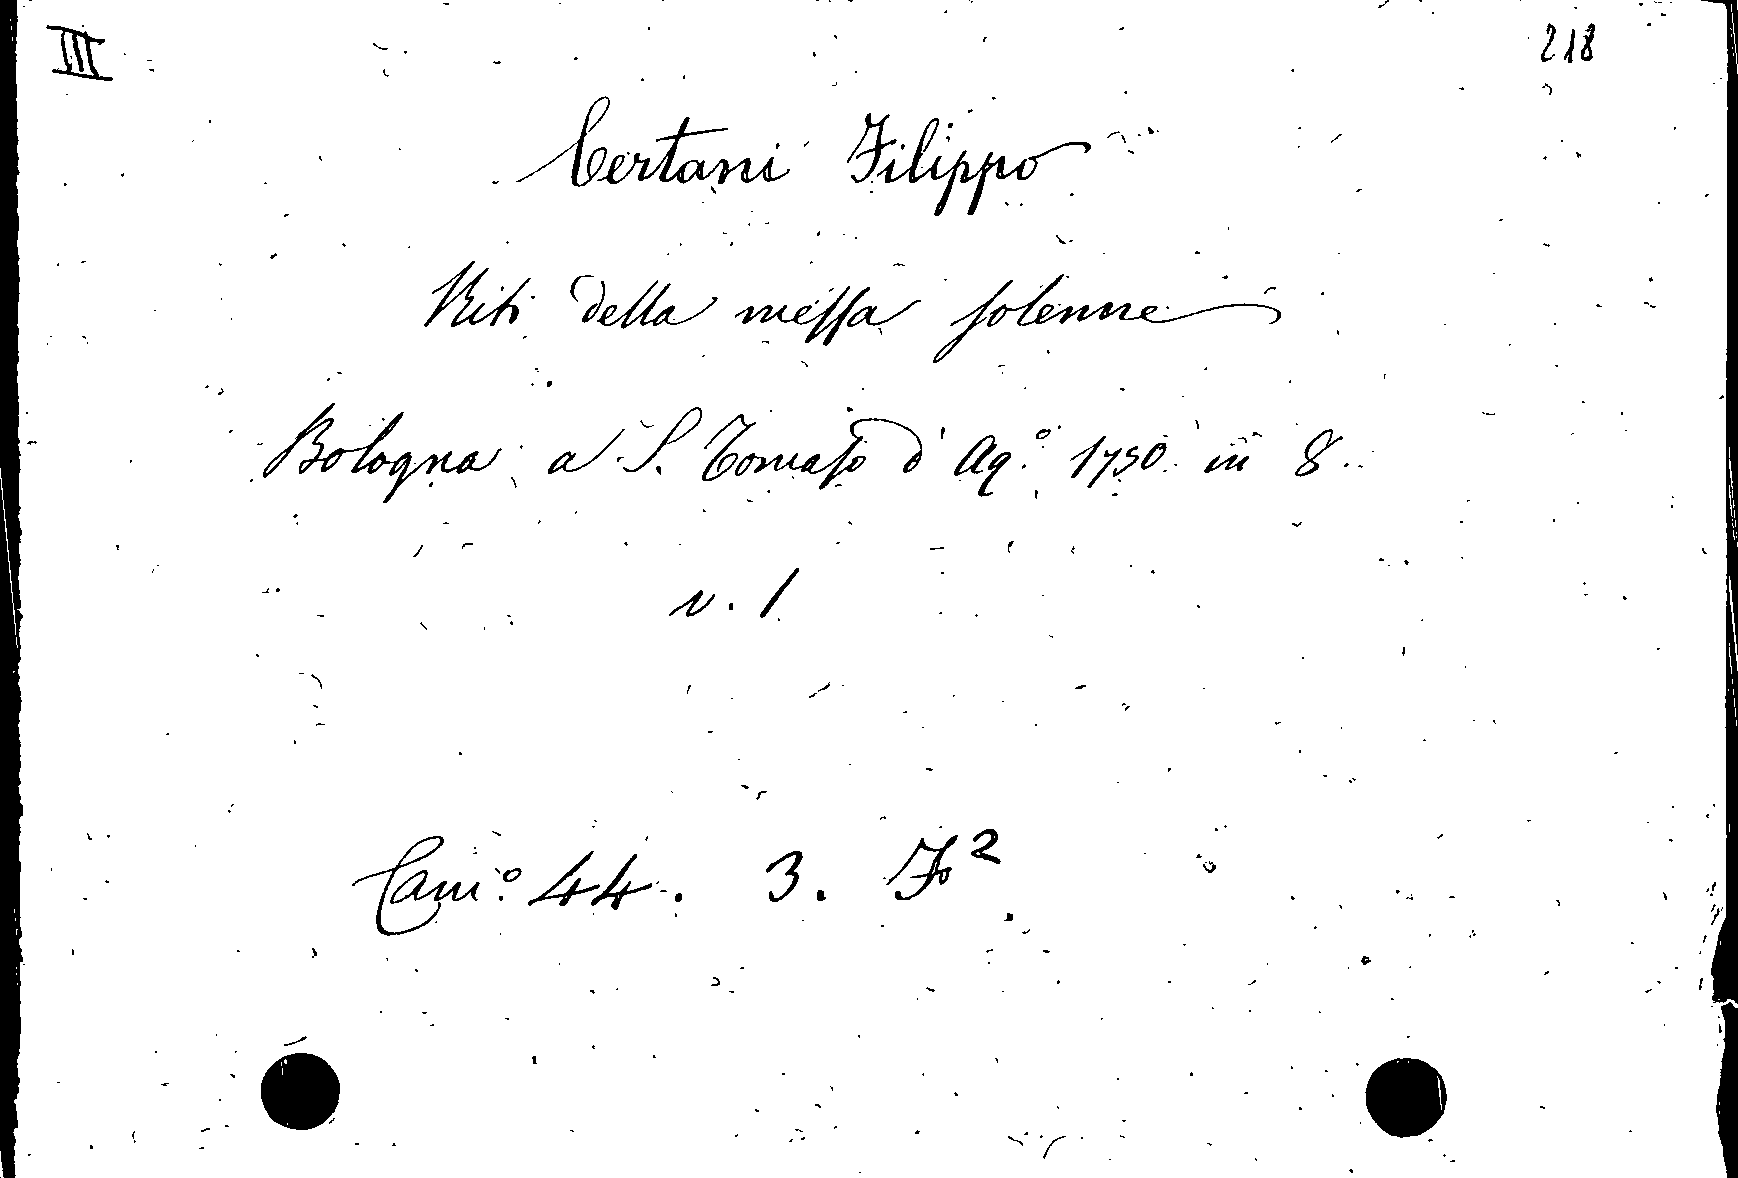 III 218
Certani Filippo
Riti della messa solenne
Bologna a S. Tomaso d'Aq.º 1750 in 8.
v. 1
Cam.º 44. 3. F²